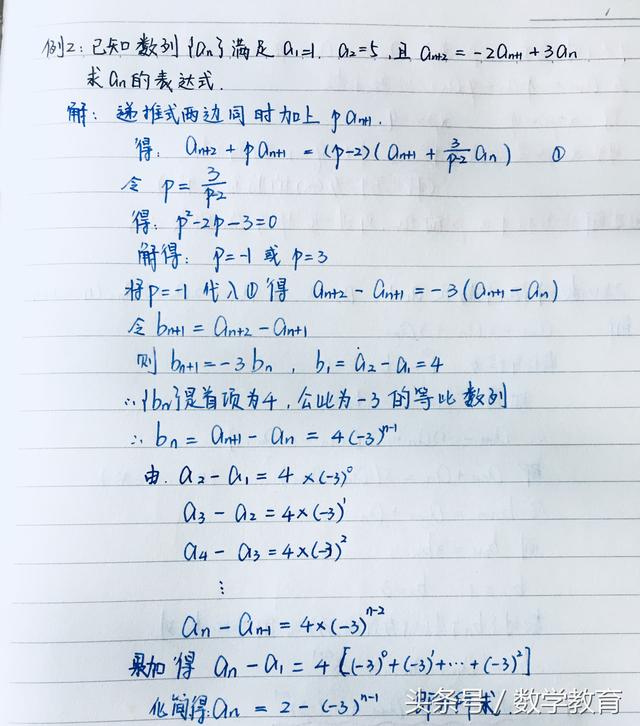 例2:已知数列{an}满足 a₁=1. a₂=5,且 aₙ₊₂ = -2aₙ₊₁ + 3aₙ
求 aₙ 的表达式.
解: 递推式两边同时加上 paₙ₊₁.
得: aₙ₊₂ + paₙ₊₁ = (p-2)(aₙ₊₁ + 3/(p-2) aₙ) ①
令 p = 3/(p-2)
得: p²-2p-3=0
解得: p=-1 或 p=3
将p=-1 代入①得 aₙ₊₂ - aₙ₊₁ = -3(aₙ₊₁ - aₙ)
令 bₙ₊₁ = aₙ₊₂ - aₙ₊₁
则 bₙ₊₁ = -3bₙ , b₁ = a₂ - a₁ = 4
∴{bₙ}是首项为4,公比为-3的等比数列
∴ bₙ = aₙ₊₁ - aₙ = 4(-3)ⁿ⁻¹
由. a₂ - a₁ = 4×(-3)⁰
a₃ - a₂ = 4×(-3)¹
a₄ - a₃ = 4×(-3)²
⋮
aₙ - aₙ₋₁ = 4×(-3)ⁿ⁻²
累加得 aₙ - a₁ = 4[(-3)⁰+(-3)¹+···+(-3)²]
化简得:aₙ = 2 - (-3)ⁿ⁻¹ 即所求.
头条号/数学教育